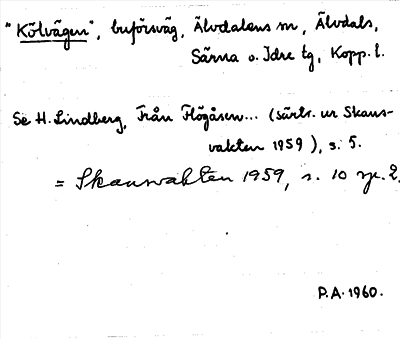 "Kölvägen", buförsväg, Älvdalens sn, Älvdals,
Särna o. Idre tg, Kopp. l.
Se H. Lindberg, Från Flögåsen... (särtr. ur Skans-
vakten 1959), s. 5.
= Skansvakten 1959, s. 10 sp. 2.
P.A. 1960.